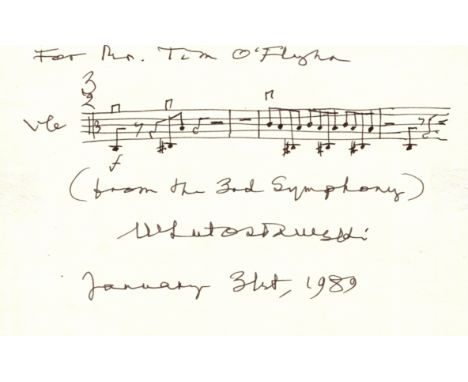 For Mr. Tim O'Flynn
3
2
Vle
f
(from the 3rd Symphony)
WLutosławski
January 31st, 1989